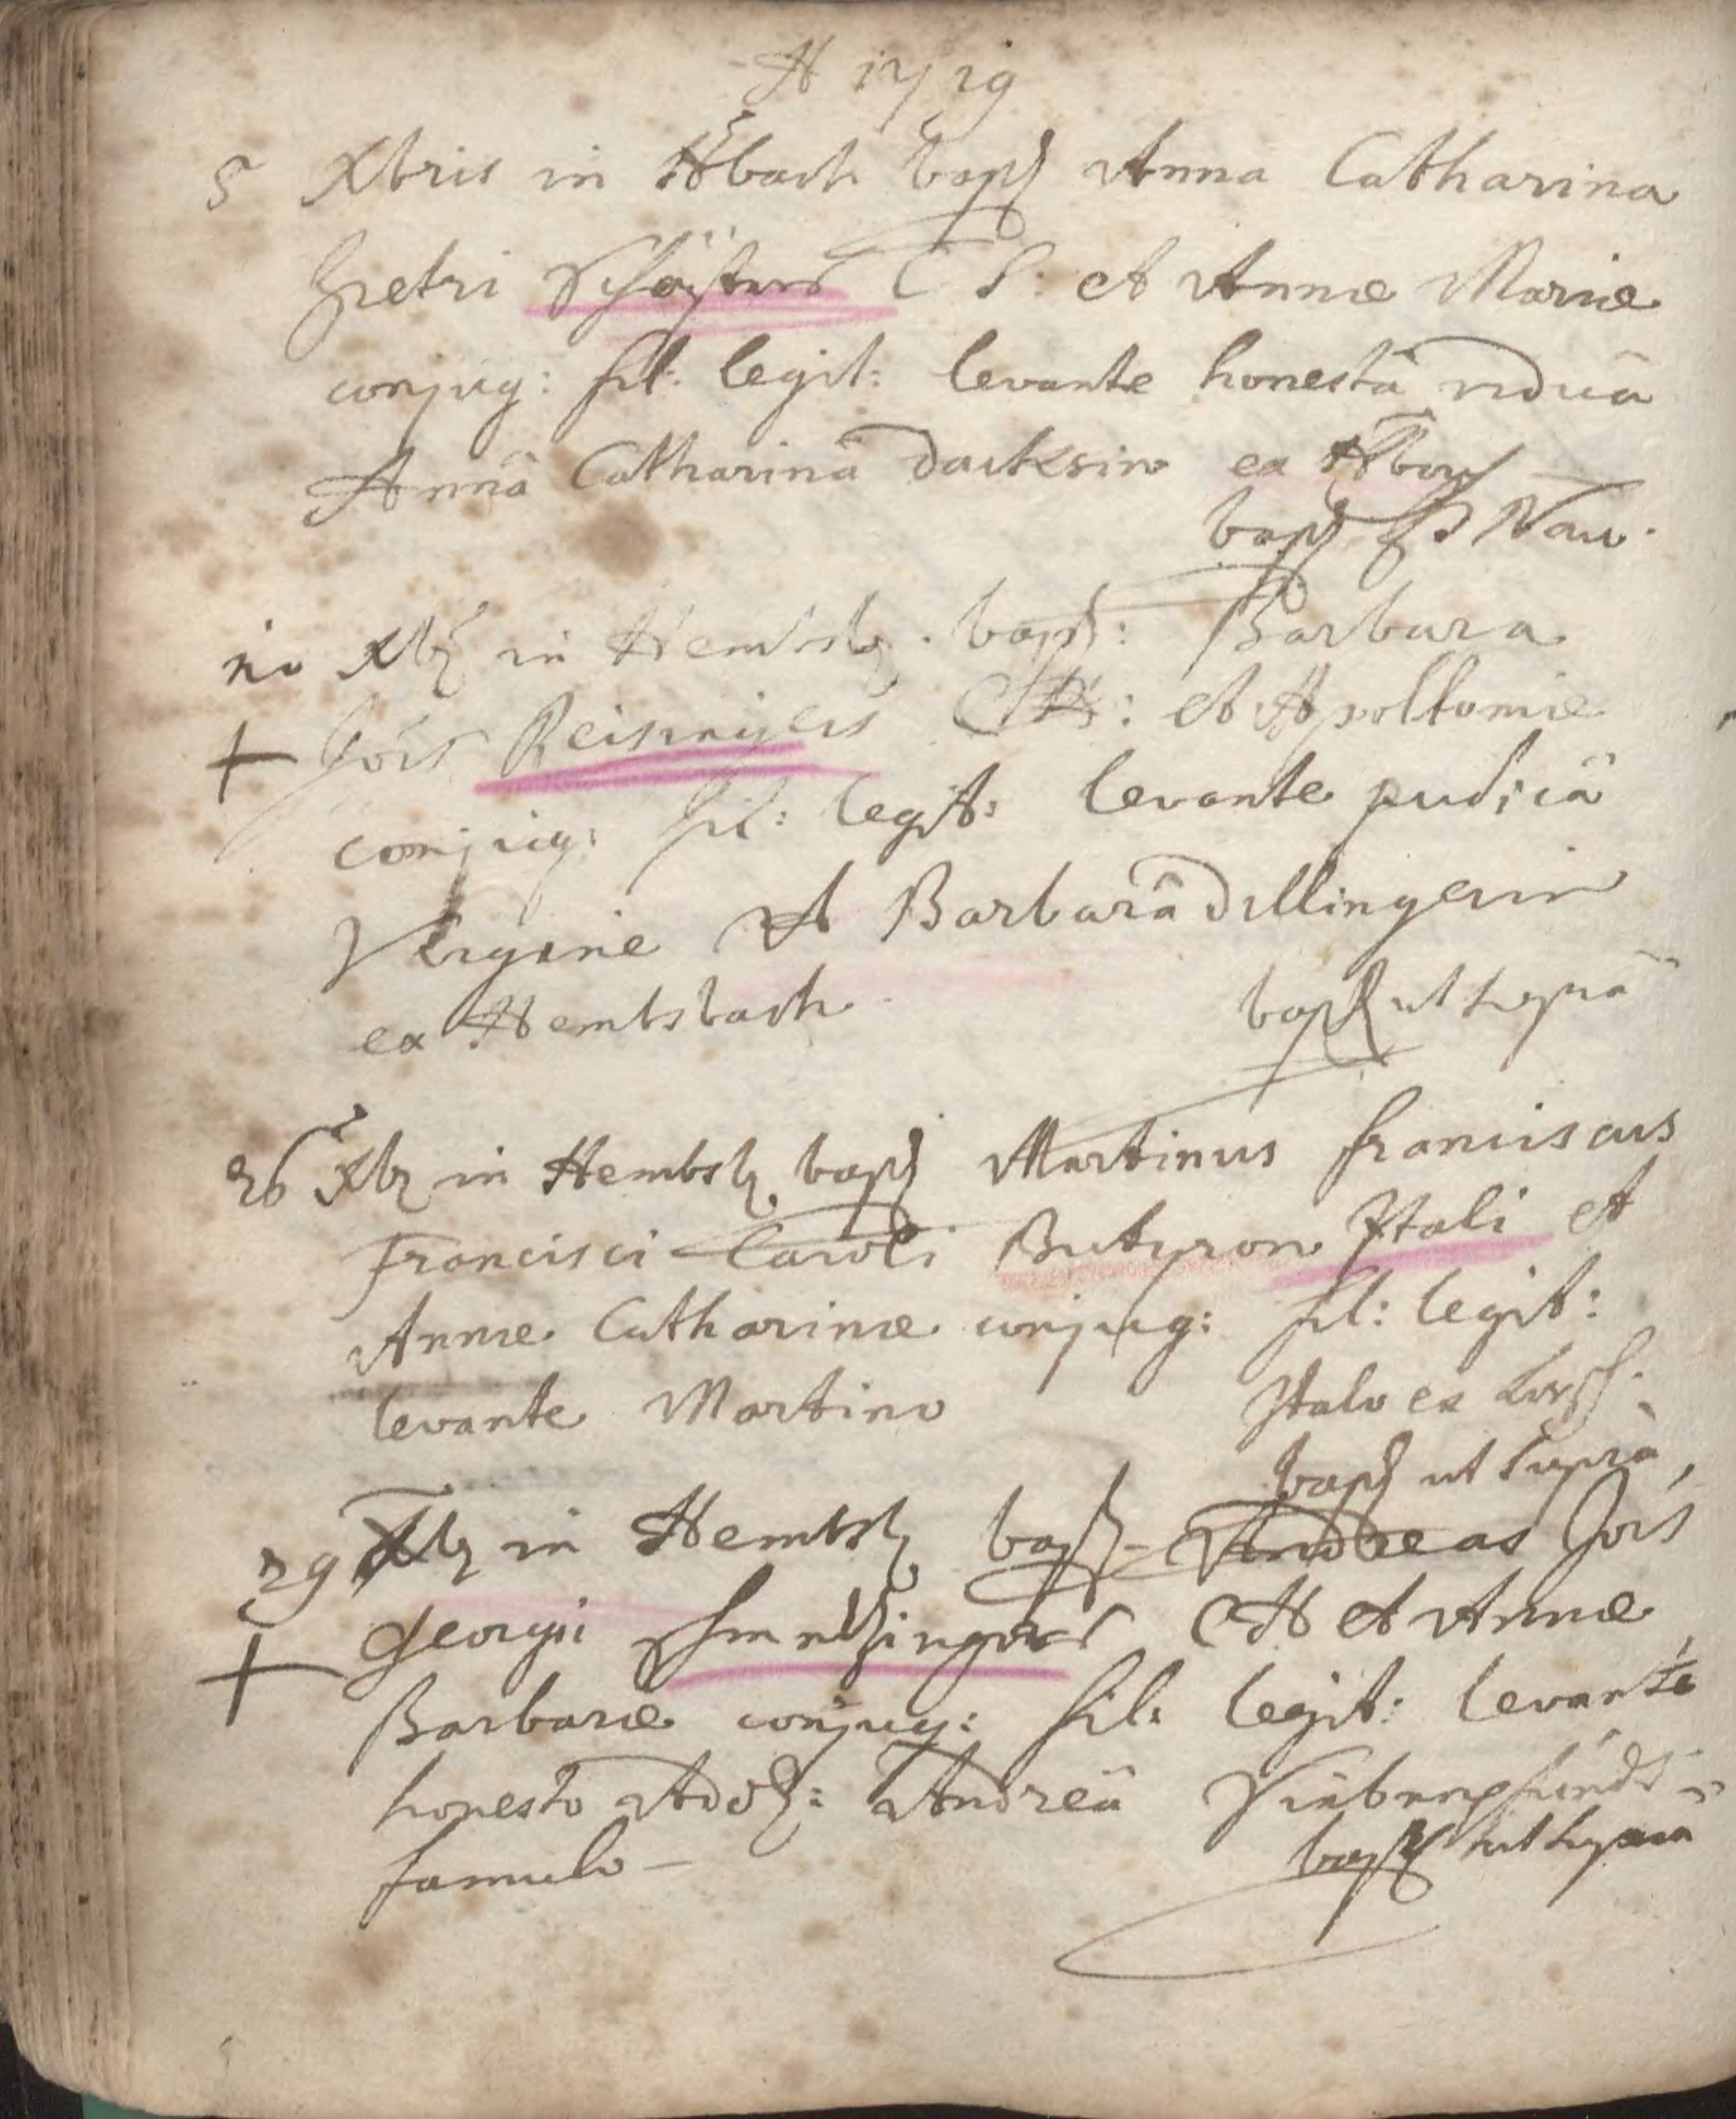 A 1719
5 Xbris in Hbach bapt Anna Catharina
petri C S: et Annæ Mariæ
conjug: fil: legit: levante honestâ viduâ
Annâ Catharinâ ex Hbach
bapt P Nau.
10 Xbr in Hembsb. bapt: Barbara
Jois Reisingers CH: et Apolloniæ
conjug: fil: legit: levante pudicâ
Virgine A Barbarâ Dillingerin
ex Hembsbach bapt ut suprà
26 Xbr in Hembsb bapt Martinus Franciscus
Francisci Caroli Butyron Itali et
Annæ Catharinæ conjug: fil: legit:
levante Martino Italo ex Lorsch.
bapt ut supra
29 Xbr in Hembsb bapt Andreas Jois
Georgii CH et Annæ
Barbaræ conjug: fil: legit: levante
honesto Adol: Andreâ
famulo - bapt ut supra